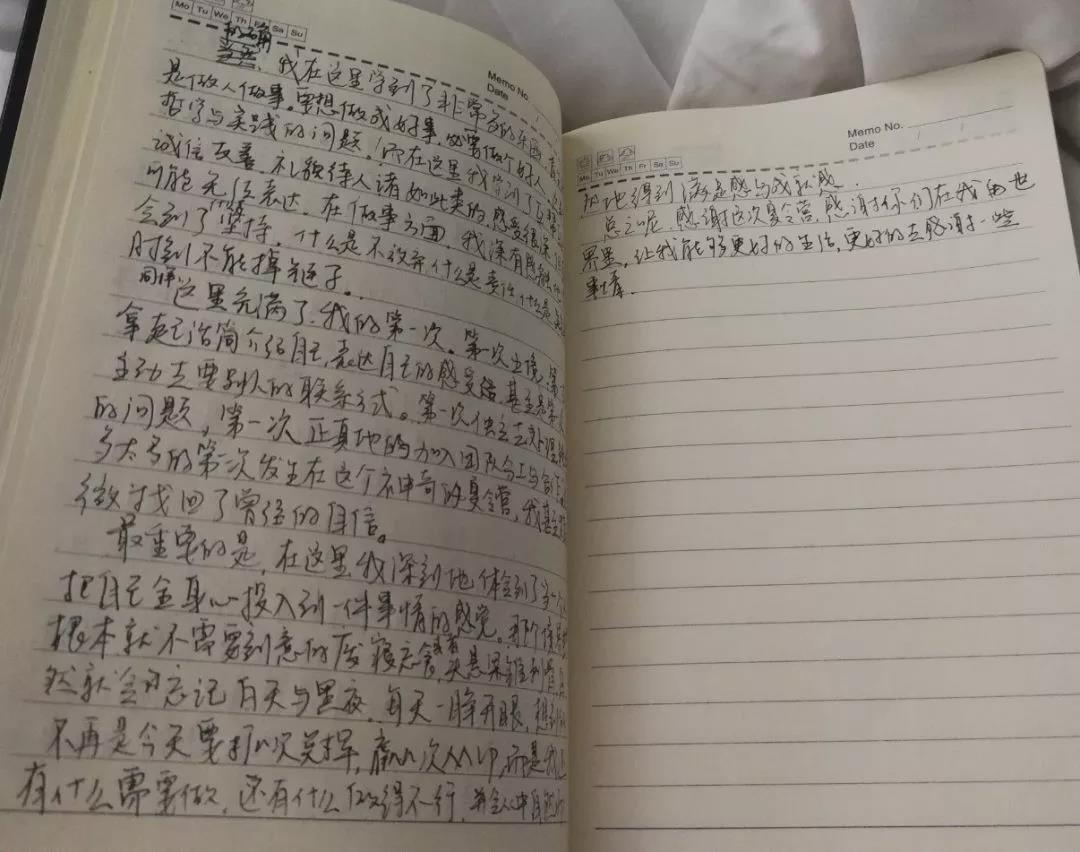 Mo Tu We Th Fr Sa Su
Memo No.
Date
我在这里学到了非常多的东西
是做人做事。要想做成好事，必要做个好人
哲学与实践的问题。而在这里我学到了
诚信友善、礼貌待人诸如此类的感受很深
可能无法表达。在做事方面，我深有感触
会到了坚持，什么是不放弃什么是责任什么是
时刻不能掉链子。
同样这里充满了我的第一次。第一次主持，第
拿起话筒介绍自己，表达自己的感受，甚至是第
主动去要别人的联系方式。第一次独立去处理
的问题，第一次正真地的加入团队分工与合作。
多太多的第一次发生在这个神奇的夏令营，我甚至
找回了曾经的自信。
最重要的是，在这里我深刻地体会到了当一个
把自己全身心投入到一件事情的感觉。那个
根本就不需要刻意的废寝忘食，头悬梁锥刺骨，
然就会忘记白天与黑夜，每天一睁开眼，想到
不再是今天要打几次，赢几次MVP，而是我
有什么需要做，还有什么做得不行，并会从中自然
Memo No.
Date
Mo Tu We Th Fr Sa Su
地得到满足感与成就感。
总之呢，感谢这次夏令营，感谢你们在我的世
界里，让我能够更好的生活，更好的去感谢一些
事情。